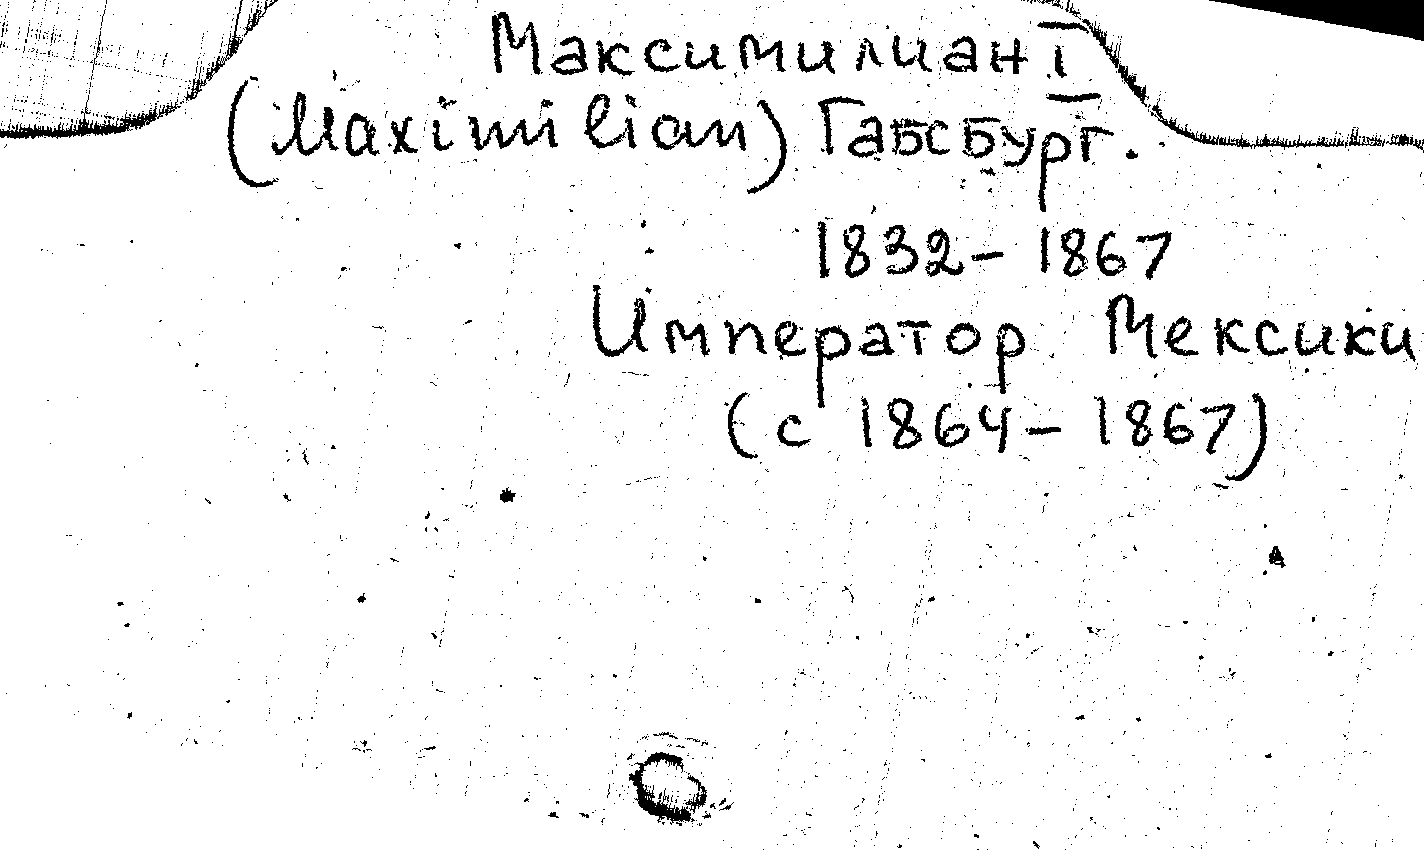 Максимилиан I
(Maximilian) Габсбург.
1832 - 1867
Император Мексики
(с 1864 - 1867)